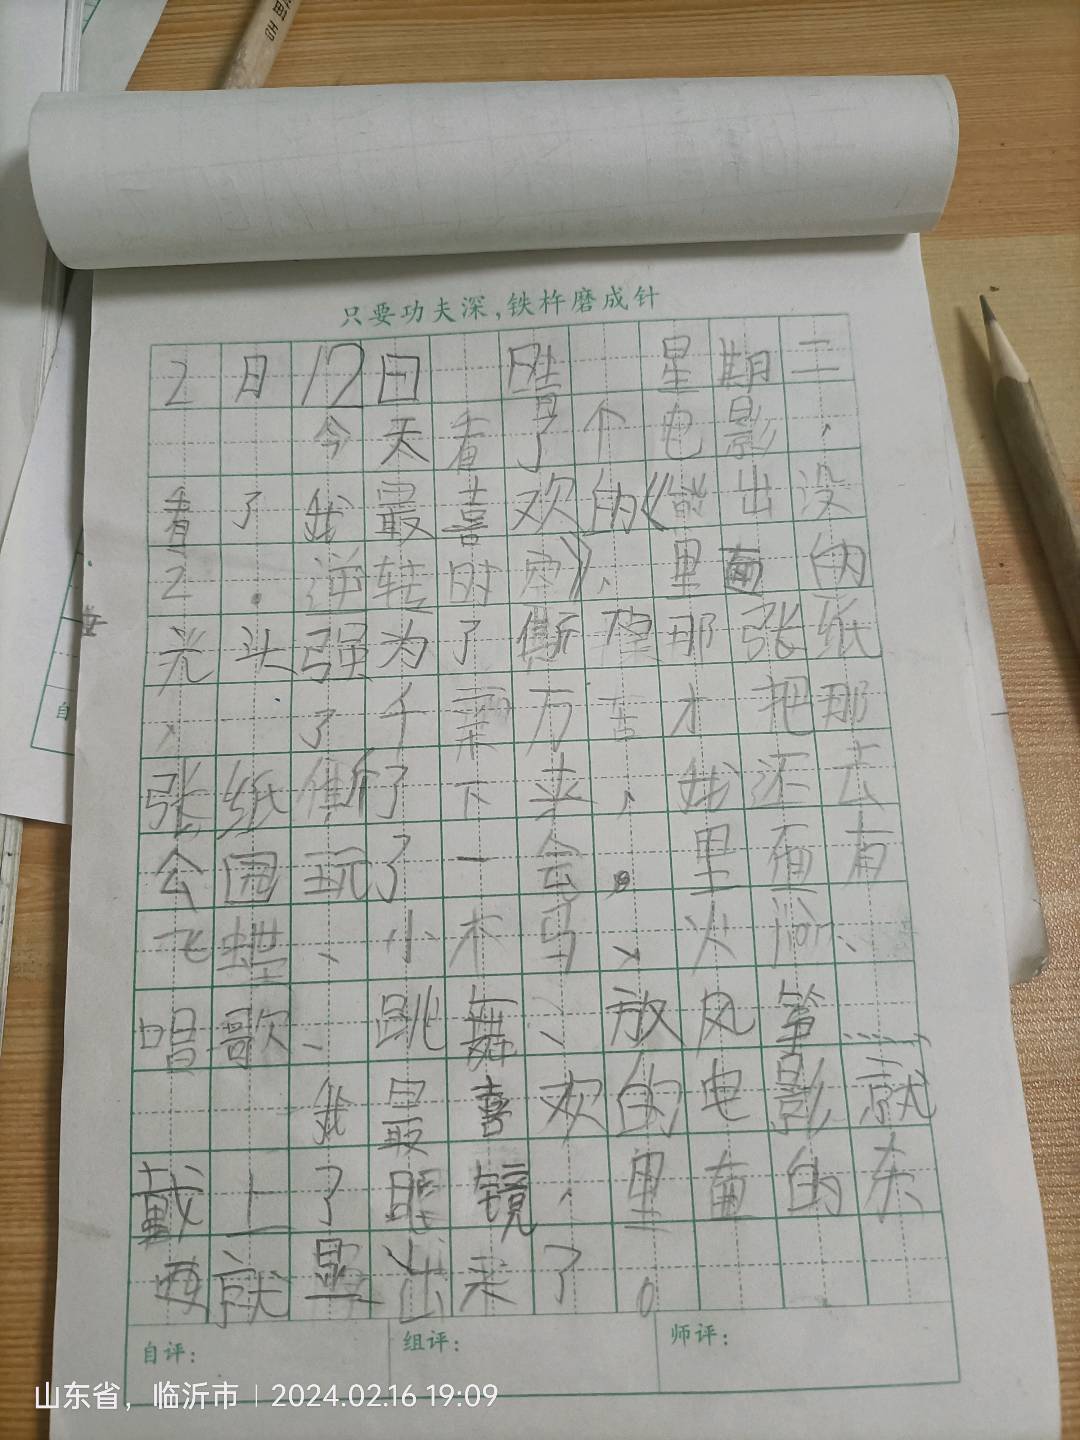 只要功夫深,铁杵磨成针
2月17日 晴 星期二
今天看了个电影,
看了我最喜欢的《熊出没
2.逆转时空》,里面的
光头强为了撕 那张纸
了千辛万苦才把那
张纸撕了下来,我还去
公园玩了一会。里面有
飞蝶、小木马、火
唱歌、跳舞、放风筝……
我最喜欢的电影就
戴上了眼镜,里面的东
要就显出来了。
自评:
组评:
师评:
山东省,临沂市 | 2024.02.16 19:09